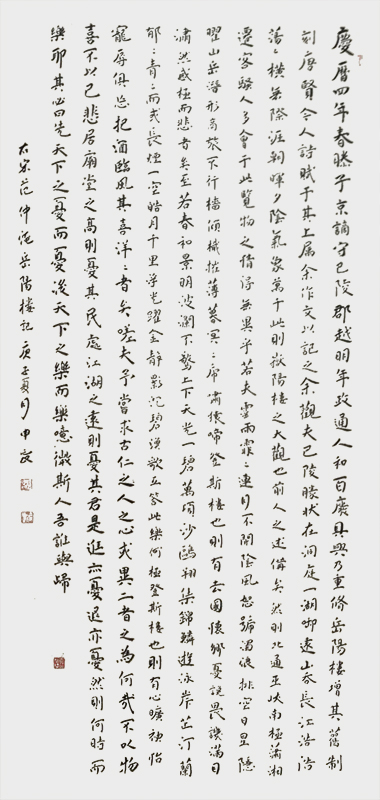 慶曆四年春滕子京謫守巴陵郡越明年政通人和百廢具興乃重修岳陽樓增其舊制
刻唐賢今人詩賦于其上屬余作文以記之余觀夫巴陵勝狀在洞庭一湖啣遠山吞長江浩浩
蕩〻橫無際涯朝暉夕陰氣象萬千此則嶽陽樓之大觀也前人之述備矣然則北通巫峽南極瀟湘
遷客騷人多會于此覽物之情得無異乎若夫霪雨霏〻連月不開陰風怒號濁浪排空日星隱
曜山岳潛形商旅不行檣傾楫摧薄暮冥〻虎嘯猿啼登斯樓也則有去國懷鄉憂讒畏譏滿目
蕭然感極而悲者矣至若春和景明波瀾不驚上下天光一碧萬頃沙鷗翔集錦鱗遊泳岸芷汀蘭
郁〻青〻而或長煙一空皓月千里浮光躍金靜影沉碧漁歌互答此樂何極登斯樓也則有心曠神怡
寵辱俱忘把酒臨風其喜洋〻者矣嗟夫予嘗求古仁之人之心或異二者之為何哉不以物
喜不以己悲居廟堂之高則憂其民處江湖之遠則憂其君是進亦憂退亦憂然則何時而
樂耶其必曰先天下之憂而憂後天下之樂而樂噫微斯人吾誰與歸
右宋范仲淹岳陽樓記庚子夏月申